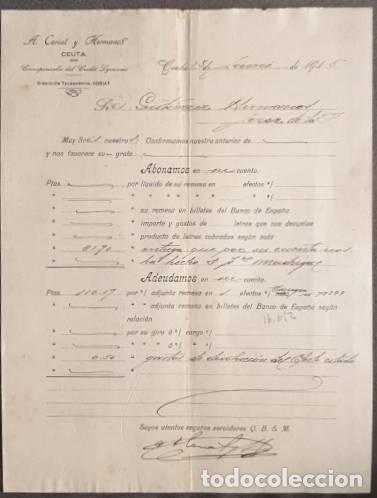 A. Coriat y Hermanos
CEUTA
Corresponsales del Crédit Lyonnais
Dirección Telegráfica: CORIAT
Ceuta de Enero de 1915
Hermanos
Jerez de la Fª
Muy Sres. nuestros: Confirmamos nuestro anterior de
y nos favorece su grata
Abonamos en su cuenta.
Ptas por líquido de su remesa en efectos s/
" " " " " " "
" su remesa en billetes del Banco de España
" importe y gastos de letras que nos devuelve
" producto de letras cobradas según nota
" 0.70 entrega que por su cuenta nos
" ha hecho D.
Adeudamos en su cuenta.
Ptas 110.17 por n/ adjunta remesa en 1 efectos s/
" " n/ adjunta remesa en billetes del Banco de España según
relación
16.012
" " por su giro á n/ cargo
" " " " " "
" 0.50 gastos de devolución del efecto citado
Suyos atentos seguros servidores Q. B. S. M.
todocoleccion.net